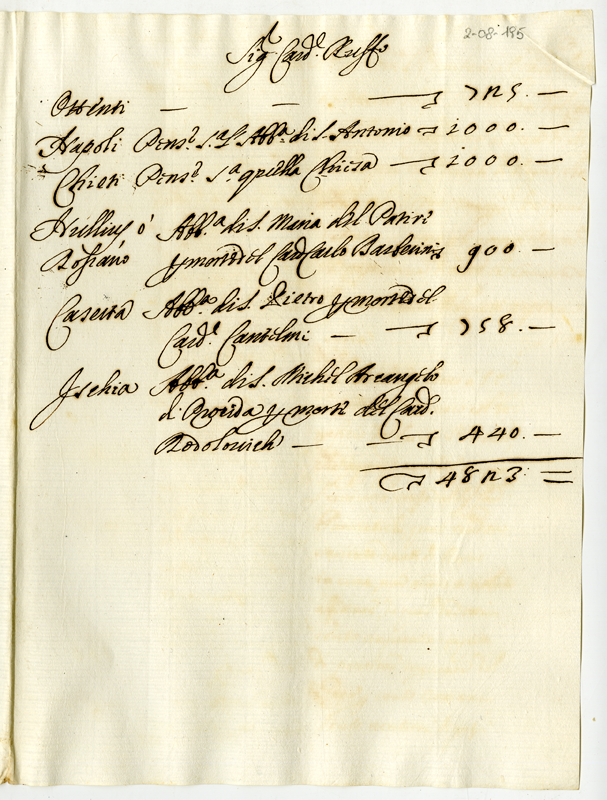 2-08-195
Sig.r Card.l Ruffo
Ottenti — — 725. —
Napoli Pens.e s.a l'Abb.a di S. Antonio 1000. —
Chieti Pens.e s.a quella Chiesa — 1000. —
Nullius ò Abb.a di S. Maria del Patiri
Rossano p morte del Card Carlo Barberini 900 —
Caserta Abb.a di S. Pietro p morte del
Card.l Cantelmi — 758. —
Ischia Abb.a di S. Michel Arcangelo
di Procida p morte del Card.
Rodolovich — 440. —
4823.